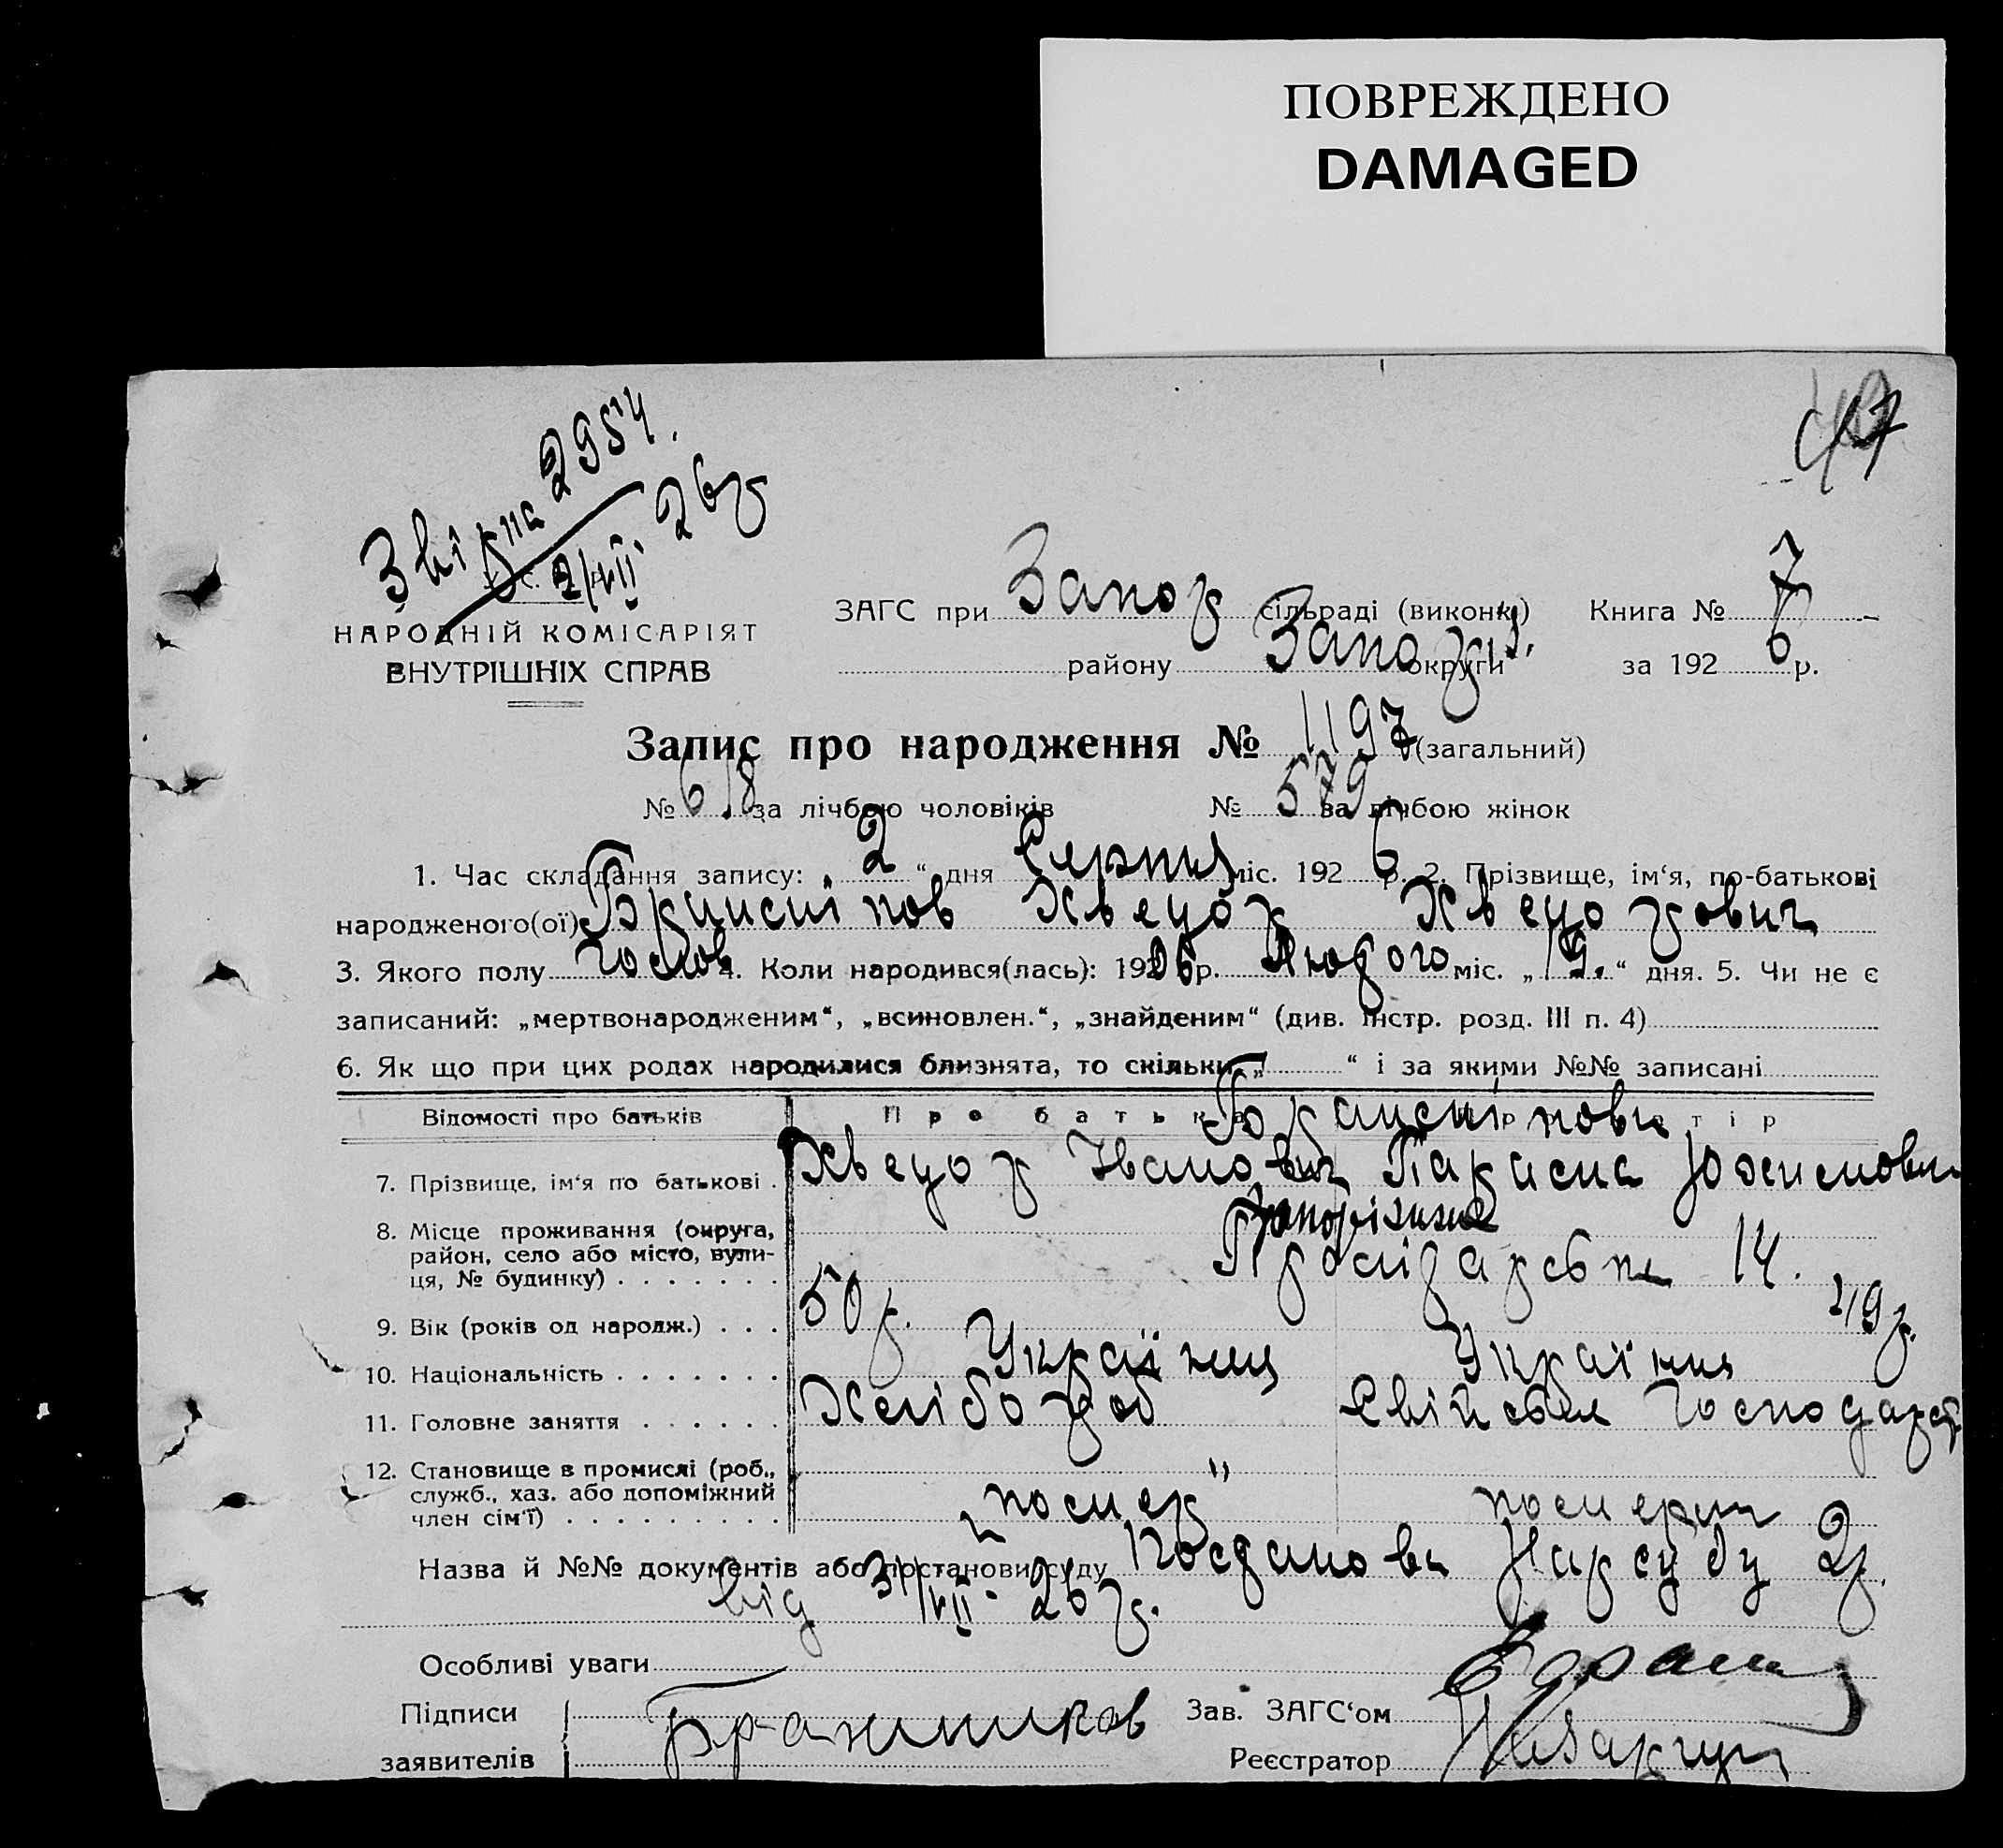 ПОВРЕЖДЕНО
DAMAGED
47
2954.
2/VII 26р
ЗАГС при Запор сільраді (виконк) Книга № 7
НАРОДНІЙ КОМІСАРІЯТ
ВНУТРІШНІХ СПРАВ
району Запоріз. округи за 1926 р.
Запис про народження № 1197 (загальний)
№ 618 за лічбою чоловіків № 579 за лічбою жінок
1. Час складання запису: 2 “ дня Серпня міс. 1926 р. 2. Прізвище, ім‘я, по-батькові
народженого(ої) Хведор Хведорович
3. Якого полу чолов 4. Коли народився(лась): 1906 р. Лютого міс. „ 19. “ дня. 5. Чи не є
записаний: „мертвонародженим“, „всиновлен.“, „знайденим“ (див. Інстр. розд. III п. 4)
6. Як що при цих родах народилися близнята, то скільки „ “ і за якими №№ записані
Відомості про батьків Про батька Про матір
7. Прізвище, ім‘я по батькові . Хведор Іванович Параска
8. Місце проживання (округа,
район, село або місто, вули-
ця, № будинку) . . . . . . . 14.
Запоріжжя
9. Вік (років од народж.) . . . 50 р. 49 р.
10. Національність . . . . . . . Українець Українка
11. Головне заняття . . . . . . Хлібороб Свійське господарст
12. Становище в промислі (роб.,
служб., хаз. або допоміжний
член сім‘ї) . . . . . . . . .
Назва й №№ документів або постанови суду Постанова Нарсуду 2р.
від 31/VII 26 р.
Особливі уваги
Підписи
заявителів
Зав. ЗАГС‘ом
Реєстратор